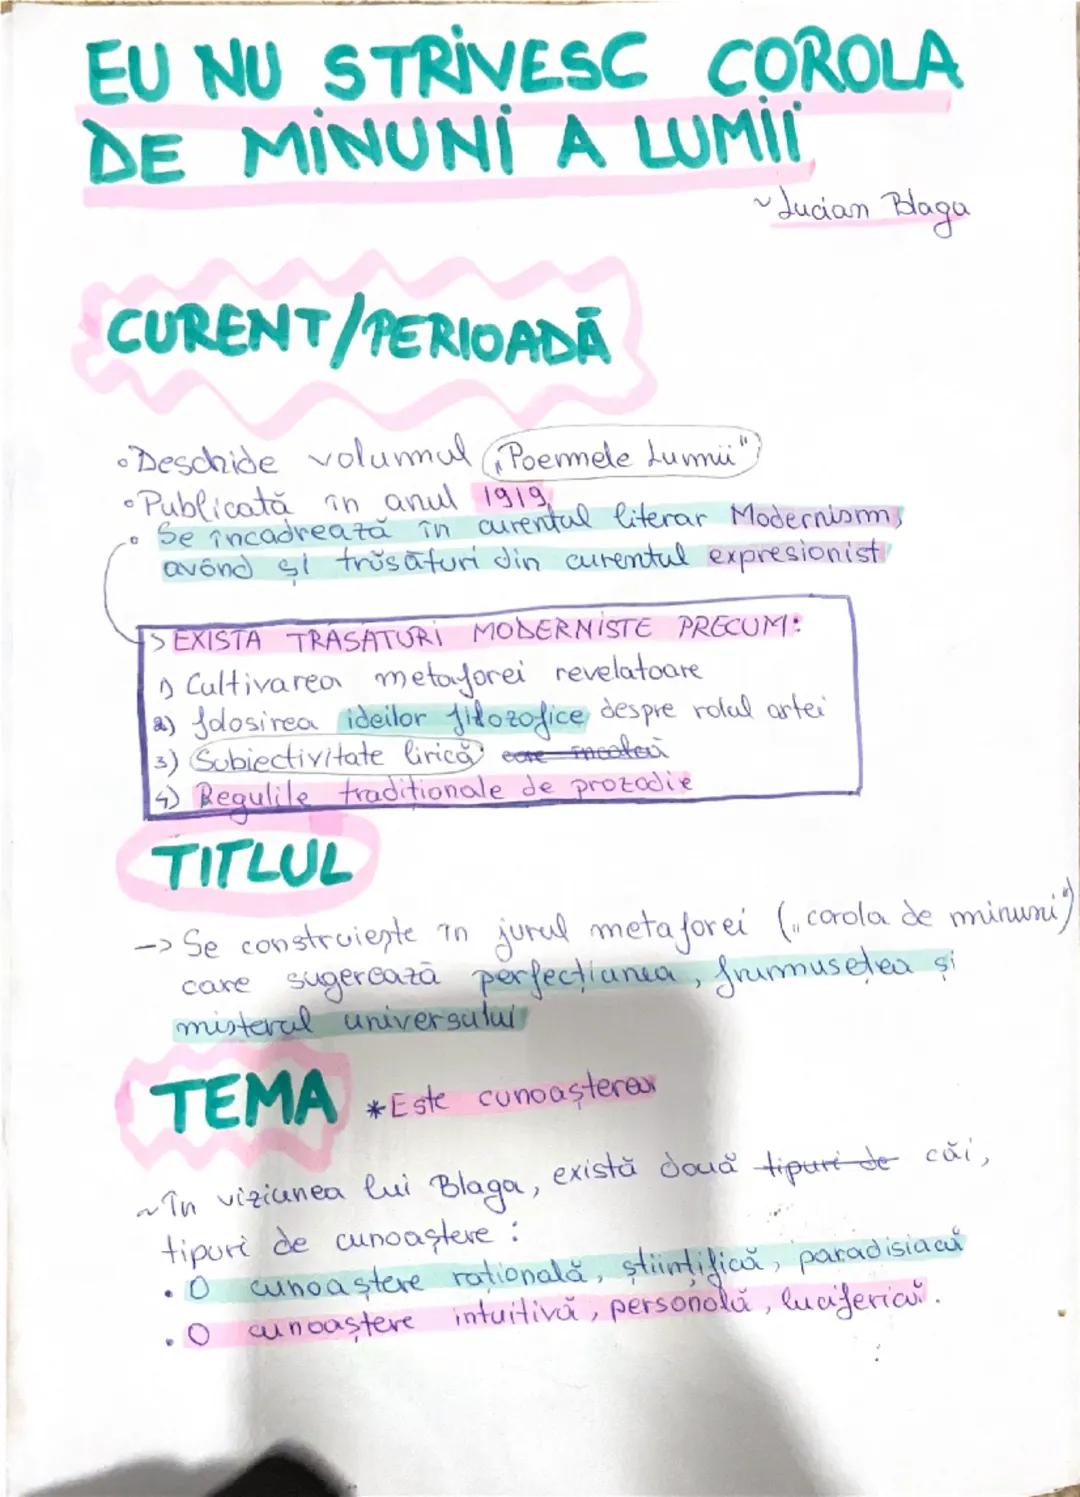 EU NU STRIVESC COROLA
DE MINUNI A LUMII
~ Lucian Blaga
CURENT/PERIOADĂ
• Deschide volumul „Poemele Lumii"
• Publicată în anul 1919,
• Se încadrează în curentul literar Modernism,
având și trăsături din curentul expresionist
> EXISTA TRASATURI MODERNISTE PRECUM:
1) Cultivarea metaforei revelatoare
2) folosirea ideilor filozofice despre rolul artei
3) Subiectivitate lirică
4) Regulile traditionale de prozodie
TITLUL
-> Se construiește în jurul metaforei („corola de minuni")
care sugerează perfecțiunea, frumusețea și
misterul universului
TEMA * Este cunoașterea
~ În viziunea lui Blaga, există două tipuri de căi,
tipuri de cunoaștere :
• O cunoaștere rațională, științifică, paradisiacă
• O cunoaștere intuitivă, personală, luciferică.